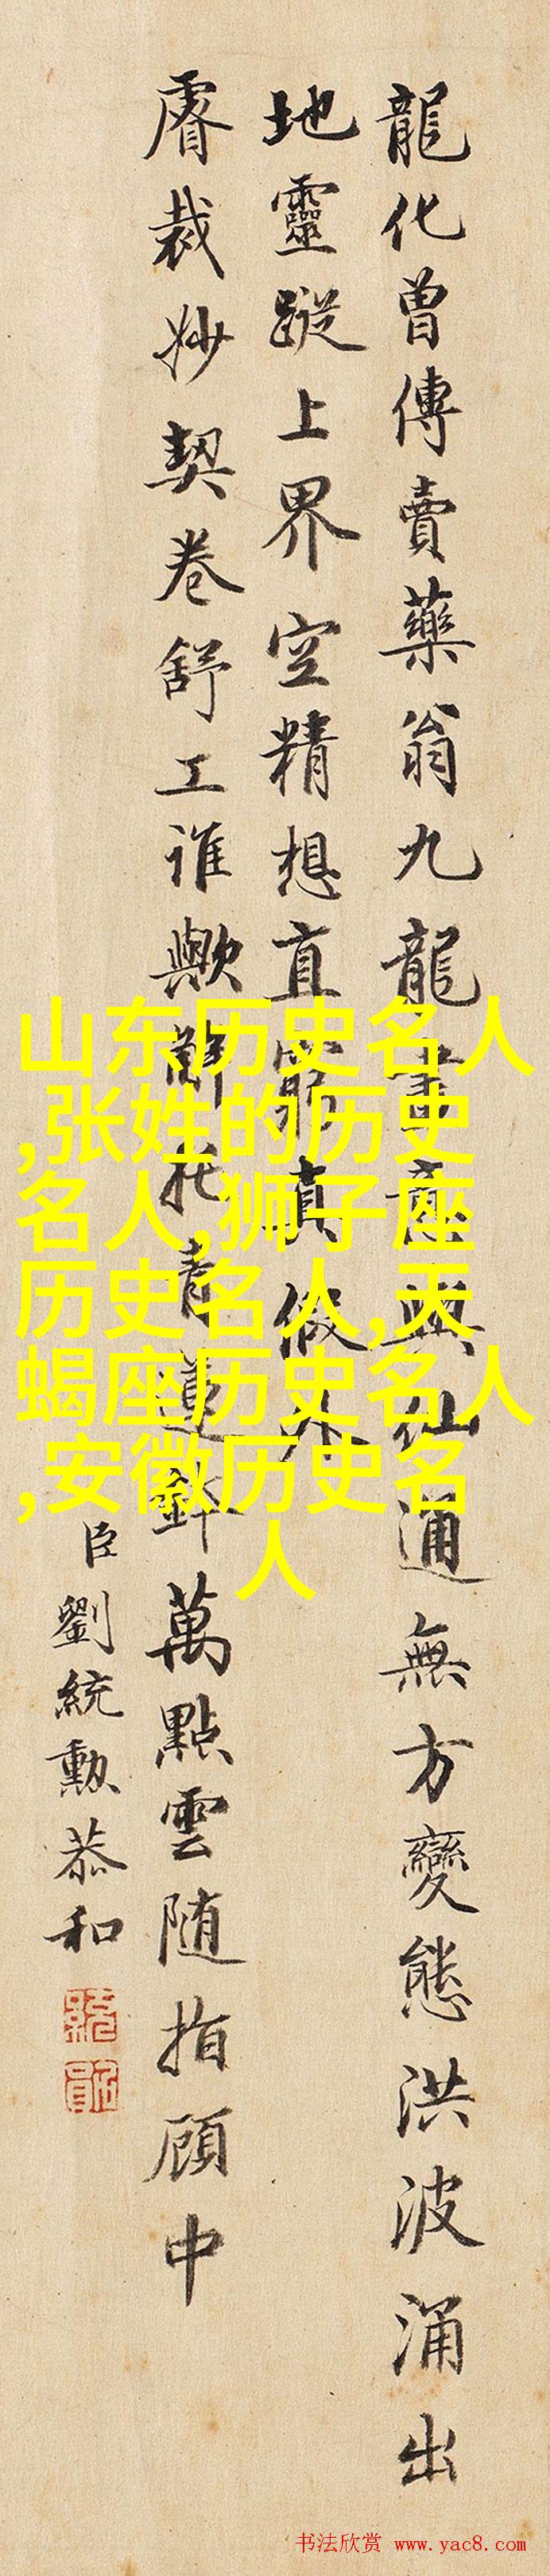 龍化曾傳賣藥翁九龍畫意與仙通無方變態洪波涌出
地靈蹤上界空精想直窮真假外
睿裁妙契卷舒工誰歟解托青蓮鉢萬點雲随指顧中
臣劉統勳恭和
山东历史名人
,张姓的历史
名人,狮子座
历史名人,天
蝎座历史名人
,安徽历史名
人
书法欣赏 www.yac8.com